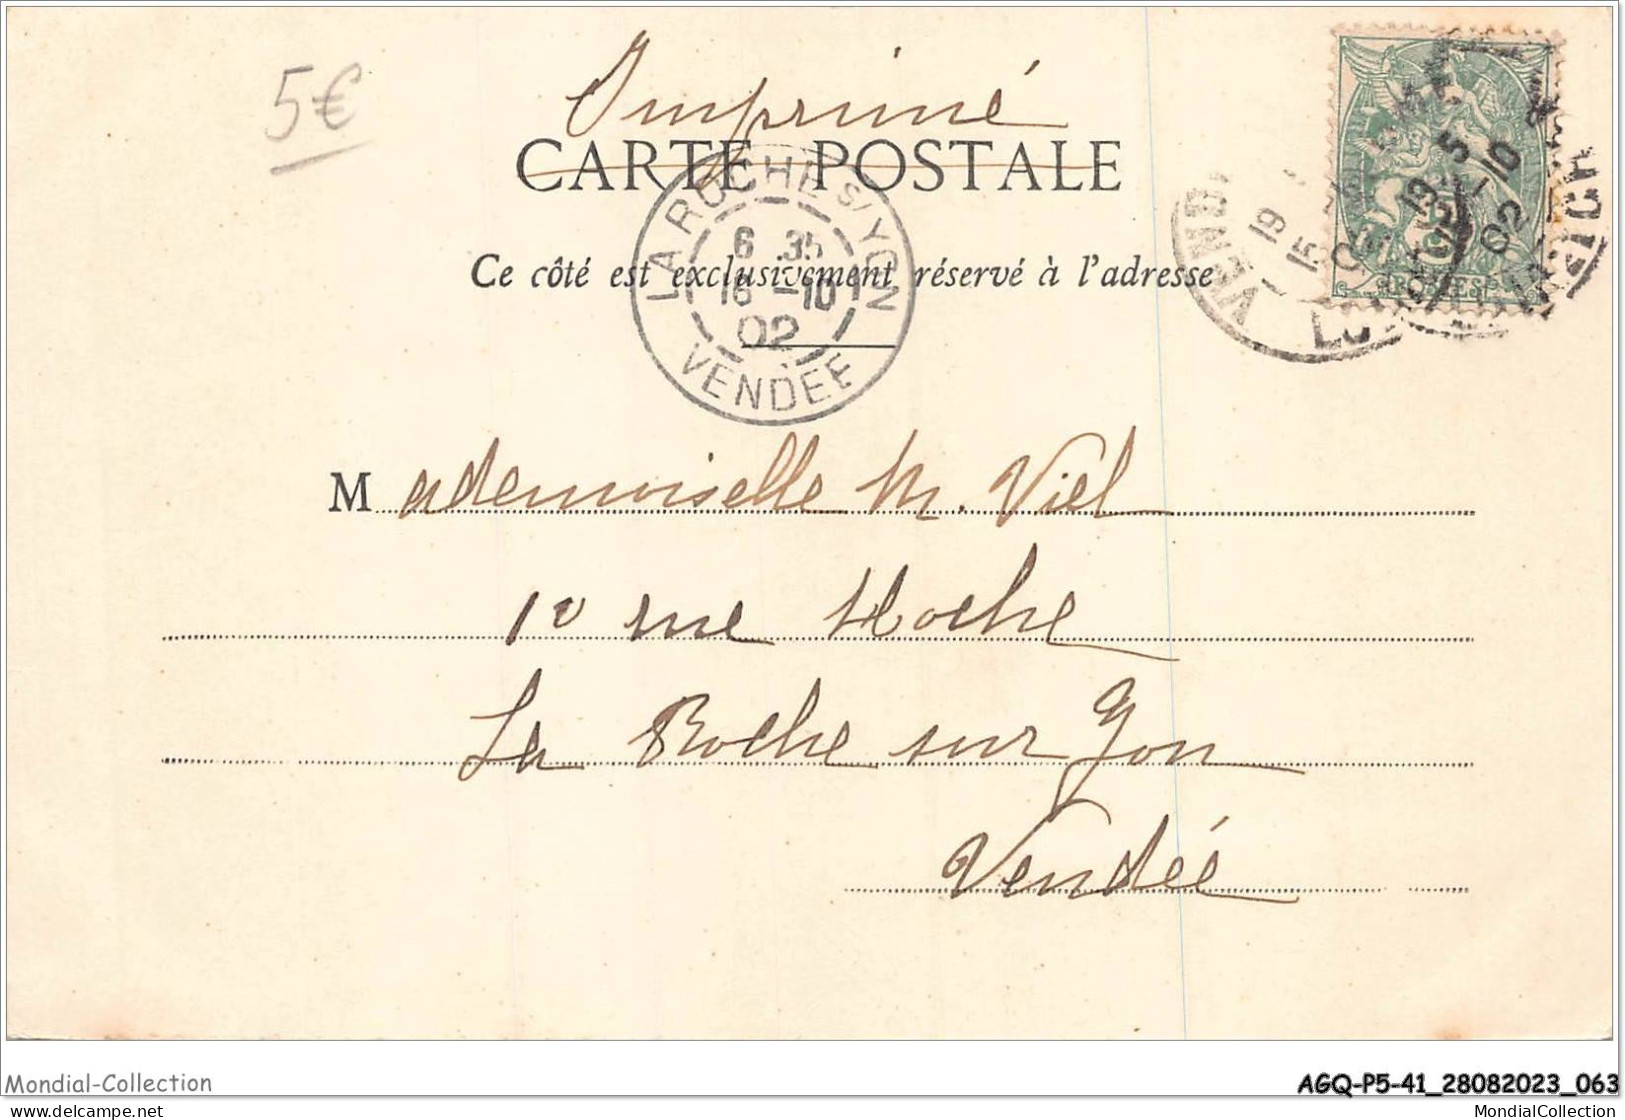 5€
Imprimé
CARTE POSTALE
Ce côté est exclusivement réservé à l'adresse
LA ROCHE S/YON
6 .35
16 -10
02
VENDÉE
19
15
19 5
15 -10
02
Mademoiselle M. Viel
10 rue Hoche
La Roche sur Yon
Vendée
Mondial-Collection
AGQ-P5-41_28082023_063
MondialCollection